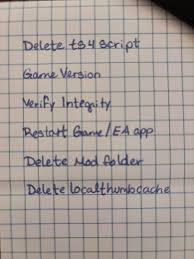 Delete ts4 script
Game Version
Verify Integrity
Restart Game/EA app
Delete Mod folder
Delete localthumbcache